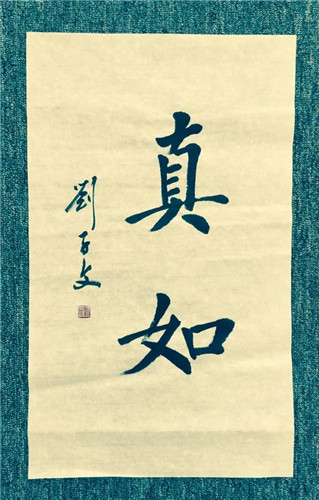 真如
劉子文